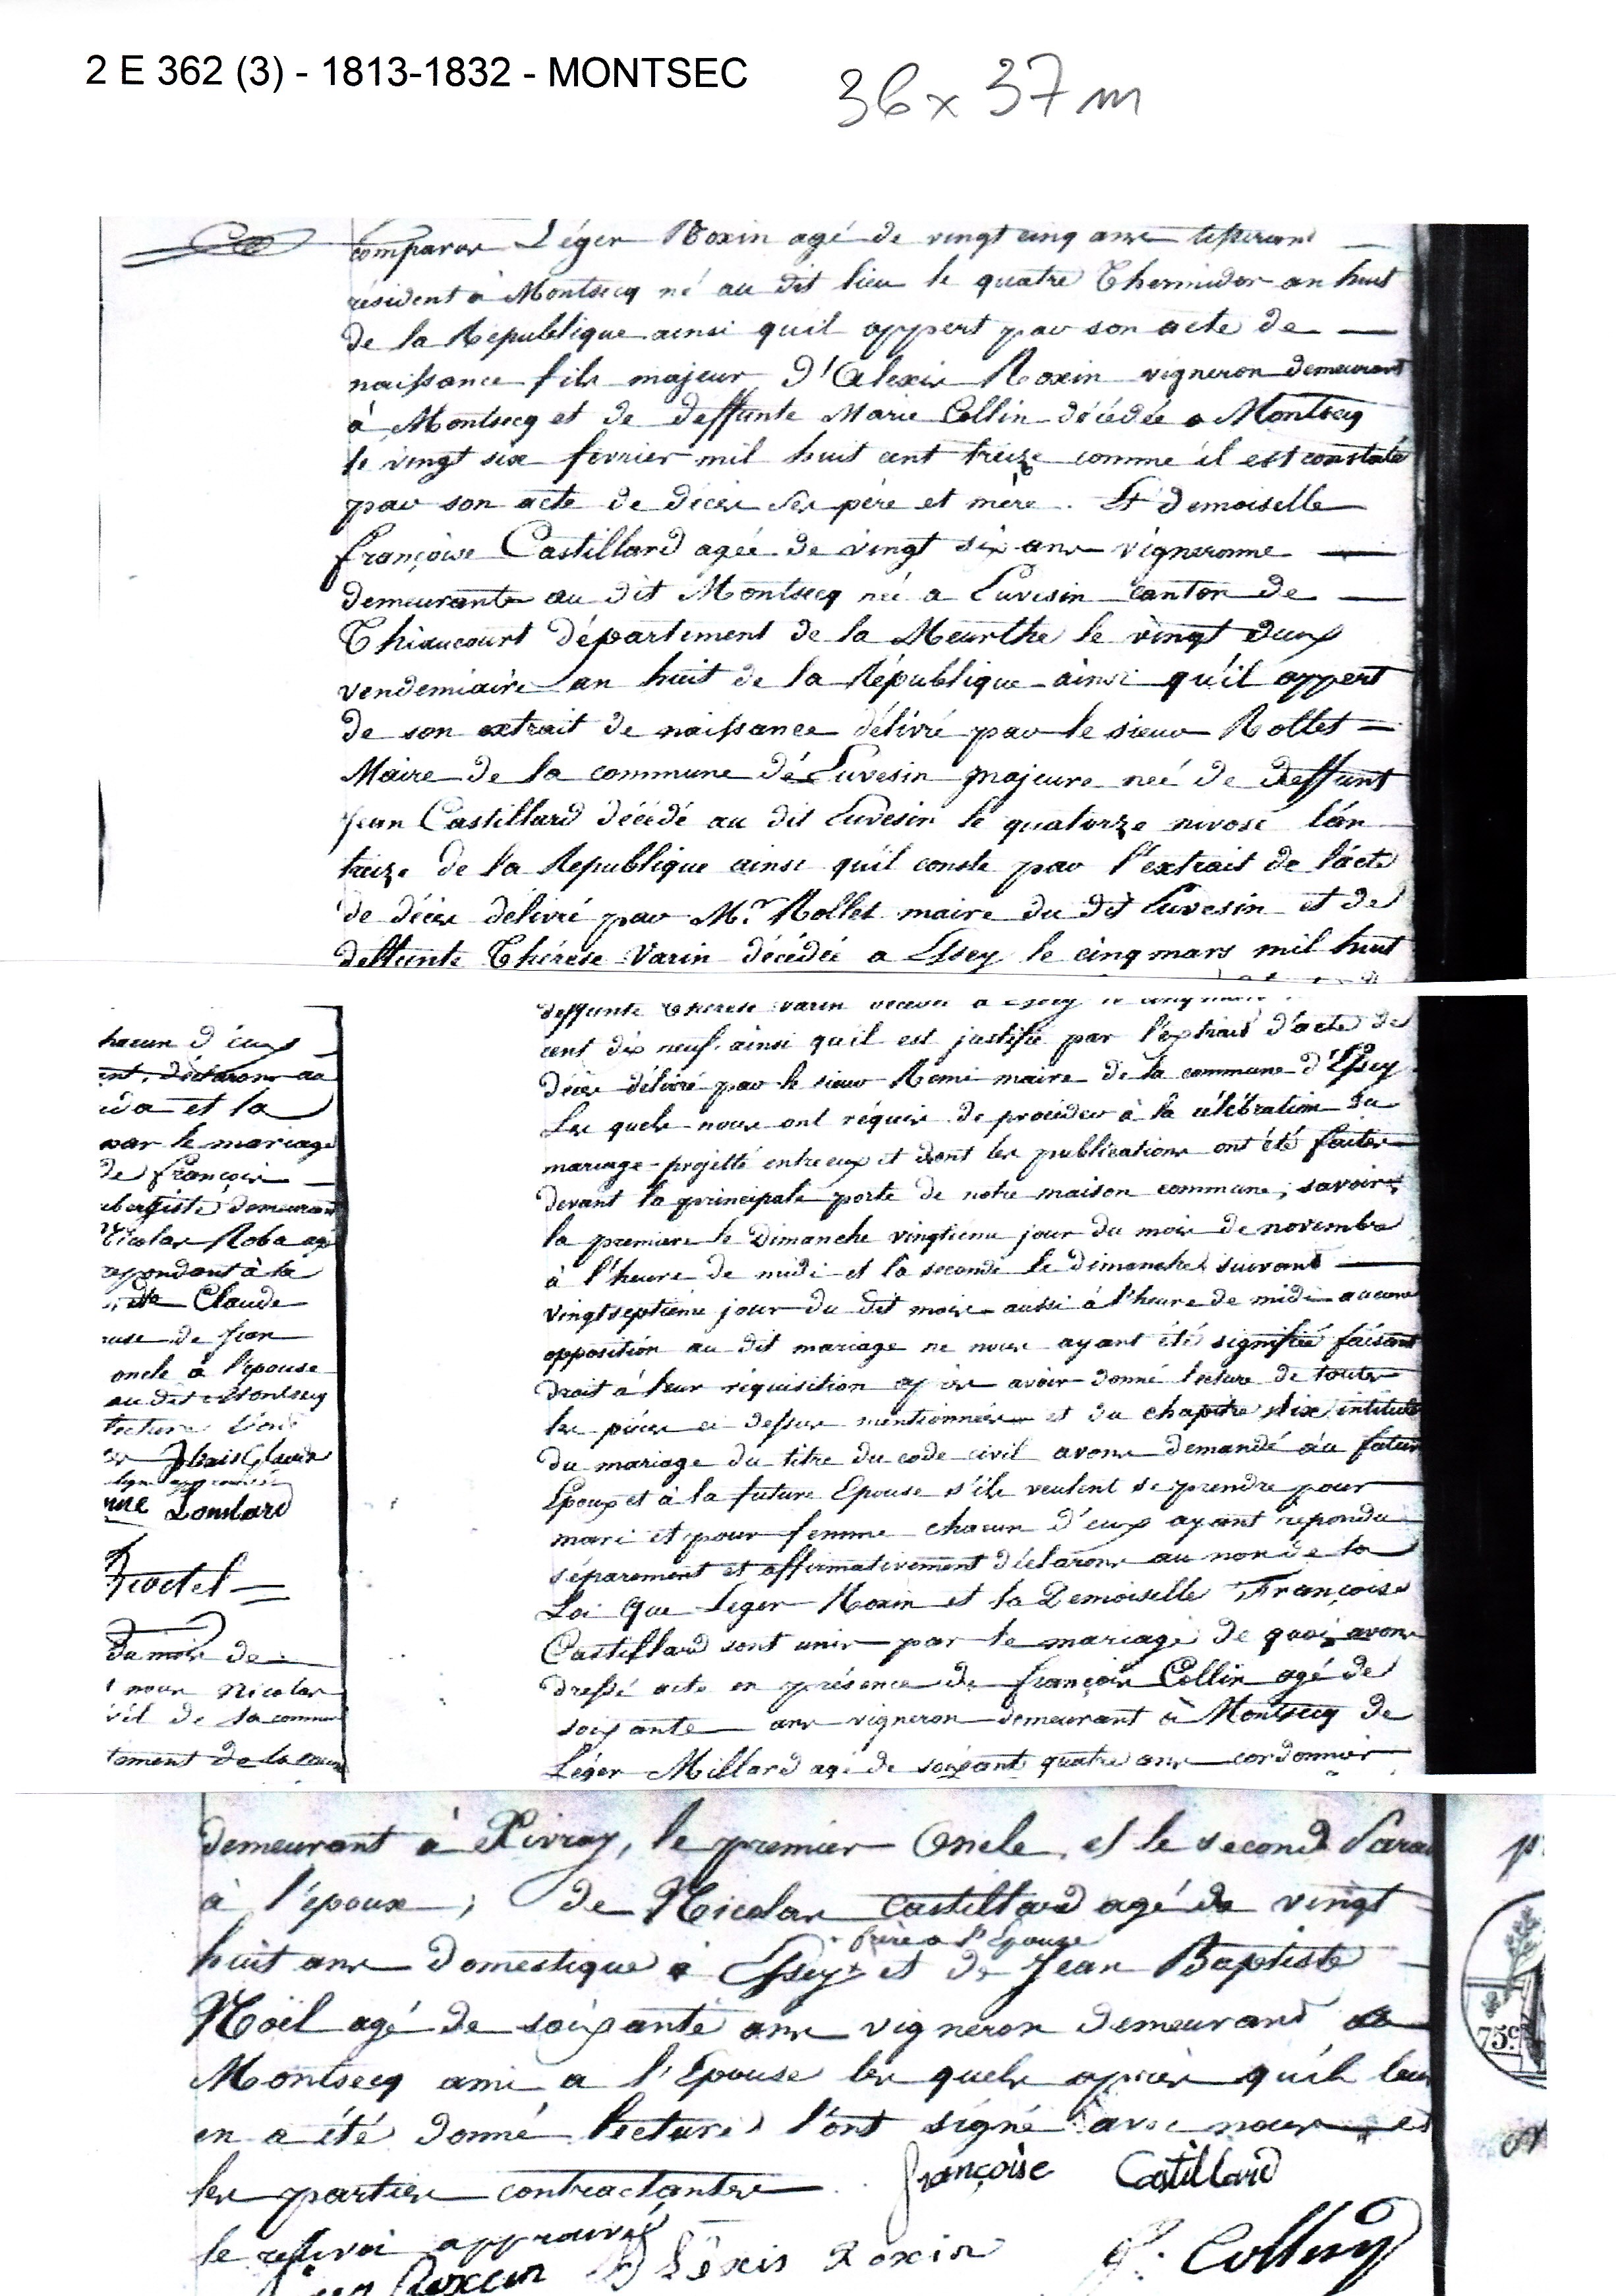 2 E 362 (3) - 1813-1832 - MONTSEC
36 x 37 m
comparer Léger Roxin agé de vingt cinq ans tisserand
résident à Montsecq né au dit lieu le quatre Thermidor an huit
de la République ainsi quil appert par son acte de
naissance fils majeur d'Alexis Roxin vigneron demeurant
à Montsecq et de deffunte Marie Collin décédée a Montsecq
le vingt six fevrier mil huit cent treize comme il est constaté
par son acte de décès ses père et mère. Et demoiselle
françoise Castillard agée de vingt six ans vigneronne
demeurante au dit Montsecq née a Euvesin canton de
Thiaucourt département de la Meurthe le vingt deux
vendemiaire an huit de la République ainsi qu'il appert
de son extrait de naissance délivré par le sieur Rollet
Maire de la commune de Euvesin majeure neé de deffunt
Jean Castillard décédé au dit Euvesin le quatorze nivose l'an
treize de la République ainsi quil conste par l'extrait de l'acte
de décès délivré par Mr Rollet maire du dit Euvesin et de
deffunte Thérèse Varin décédée a Essey le cinq mars mil huit
hacun d'eux
ent, déclarons au
et la
par le mariage
de françois
demeurant
Nicolas Roba agé
repondant à la
Claude
de Jean
oncle à l'épouse
au dit Montsecq
lecture
Lombard
du mois de
nous Nicolas
vil de la commune
tement de la meuse
deffunte Thérèse Varin décédée a Essey le cinq mars
cent dix neuf ainsi quil est justifié par l'extrait d'acte de
décès délivré par le sieur Remi maire de la commune d'Essey
Les quels nous ont réquis de procéder à la célébration du
mariage projetté entre eux et dont les publications ont été faites
devant la principale porte de notre maison commune, savoir;
la premiere le Dimanche vingtième jour du mois de novembre
à l'heure de midi et la seconde le dimanche suivant
vingt septième jour du dit mois aussi à l'heure de midi aucune
opposition au dit mariage ne nous ayant été signifiée faisant
droit à leur réquisition après avoir donné lecture de toutes
les pièces ci dessus mentionnées et du chapitre six intitulé
du mariage du titre du code civil avons demandé au futur
Epoux et à la future Epouse s'ils veulent se prendre pour
mari et pour femme chacun d'eux ayant repondu
séparement et affirmativement déclarons au nom de la
Loi que Leger Roxin et la Demoiselle Françoise
Castillard sont unis par le mariage de quoi avons
dressé acte en présence de françois Collin agé de
soixante ans vigneron demeurant à Montsecq de
Léger Millard agé de soixant quatre ans cordonnier
demeurant à Xivray, le premier Oncle, et le second Parain
à l'époux; de Nicolas Castillard agé de vingt
frère a l'Epouse
huit ans domestique à Essey et de Jean Baptiste
Noël agé de soixante ans vigneron demeurand a
Montsecq ami a l'Epouse les quels après qu'il leur
en a été donné lecture l'ont signé avec nous et
les parties contractantes. françoise Castillard
le renvoi approuvé
Roxin Aléxis Roxin
75c